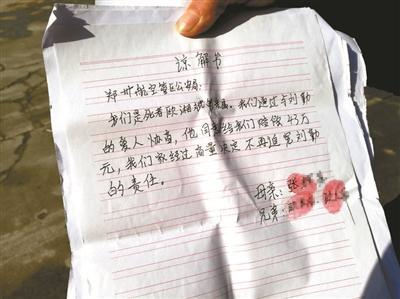 谅解书
郑州航空港区公安局:
我们是死者欧湘 亲属。我们通过与刘勤
的家人协商,他同意给我们赔偿43万
元,我们家经过商量决定不再追究刘勤
的责任。
母亲:张
兄弟: